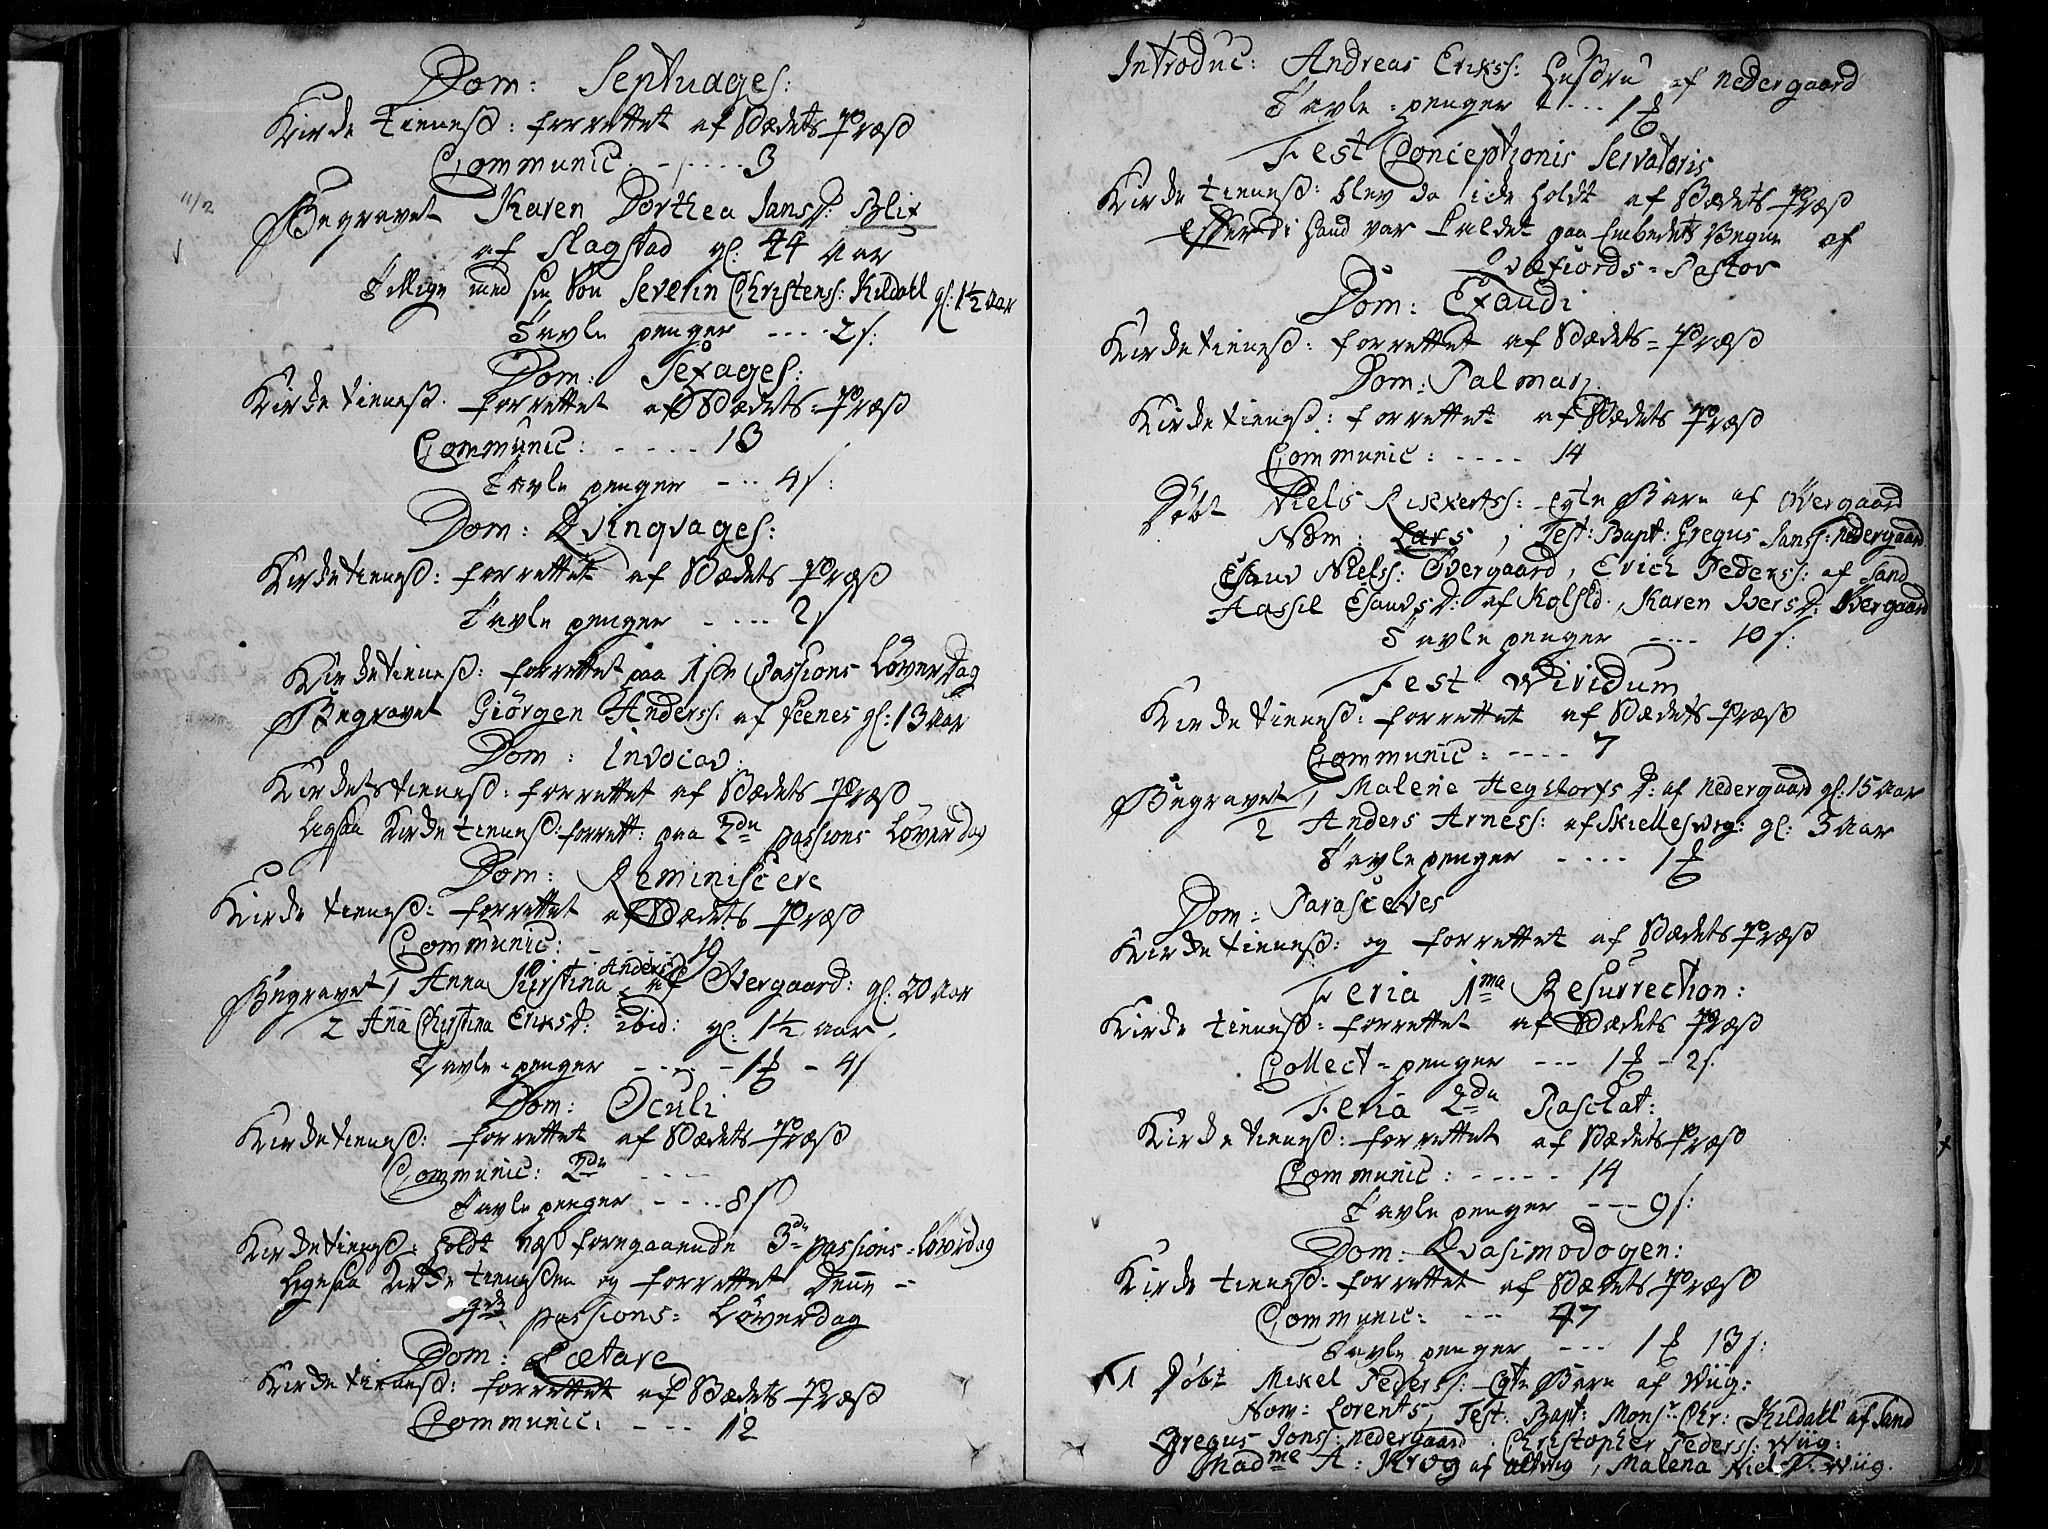 Dom: Septuages:
Kirke tienest: forrettet af Stædets Præst
Communic: - - - - - 3
11/2
Begravet Karen Dorthea Jansd: Blix
af Slagstad gl: 44 aar
Tillige med sin Søn Severin Christens: Kildahl gl: 1½ aar
Tavle penger - - - - 2 s:
Dom: Sexages:
Kirke tienest: forrettet af Stædets Præst
Communic: - - - - - 13
Tavle penger - - - 4 s:
Dom: Qvinqvages:
Kirke tienest: forrettet af Stædets Præst
Tavle penger - - - - 2 s
Kirke tienest: forrettet paa 1ste Passions Løverdag
Begravet Giörgen Anderss: af Steenes gl: 13 aar
Dom: Invocav:
Kirkets tienest: forrettet af Stædets Præst
Ligesaa Kirke tienest: forrett: paa 2den passions Løverdag
Dom: Reminiscere
Kirke tienest: forrettet af Stædets Præst
Communic: - - - - - 19
Begravet 1 Anna Kirstina Andersd af Overgaard: gl: 20 aar
2 Ana Christina Eriksd: ibid: gl: 1½ aar
Tavle-penger - - - - 1 ℔ - 4 s
Dom: Oculi
Kirke tienest: forrettet af Stædets Præst
Communic: 2de - - - -
Tavle penger - - - - 8 s
Kirke tienest: holdt næst foregaaende 3de passions-Løverdag
Ligesaa Kirke tienesten og forrettet denne -
4de passions-Løverdag
Dom: Lætare
Kirke tienest: forrettet af Stædets Præst
Communic: - - - 12
Introduc: Andreas Erikss: Hustru af Nedergaard
Tavle-penger - - - 1 ℔
Fest Conceptionis Servatoris
Kirke tienest: blev da icke holdt af Stædets Præst
efterdi hand var kaldet paa Embedets Vegne af
Qvæfiords-Pastor
Dom: Exaudi
Kirke tienest: forrettet af Stædets-Præst
Dom: Palmar:
Kirke tienest: forrettet af Stædets Præst
Communic: - - - - 14
Døbt Niels Rikkertss: Egte Barn af Overgaard
Nom: Lars, Test: Bapt: Gregus Janss: Nedergaard
Esaud Nielss: Overgaard, Erich Pederss: af Sand
Aassel Esauds d: af Kolstd:, Karen Ivers d: Overgaard
Tavle penger - - - 10 s:
Fest Viridum
Kirke tienest: forrettet af Stædets Præst
Communic: - - - - 7
Begravet 1 Malene Hegstorfs d: af Nedergaard gl: 15 aar
2 Anders Arness: af Skiellesvig: gl: 3 aar
Tavle penger - - - - 1 ℔
Dom: Parasceves
Kirke tienest: og forrettet af Stædets Præst
Feria 1ma Resurrection:
Kirke tienest: forrettet af Stædets Præst
Collect-penger - - - 1 ℔ - 2 s:
Feria 2da Paschat:
Kirke tienest: forrettet af Stædets Præst
Communic: - - - - - 14
Tavle penger - - - 9 s:
Dom: Qvasimodogen:
Kirke tienest: forrettet af Stædets Præst
Communic: - - - 47
Tavle penger - - - 1 ℔ 13 s:
1 Døbt Mikel Pederss: Egte Barn af Wiig:
Nom: Lorents, Test: Bapt: Monsr: Chr: Kildahl af Sand
Gregus Jonss: Nedergaard, Christopher Pederss: Wiig:
Madme A: Krog af Altevig, Malena Niels d: Wiig.